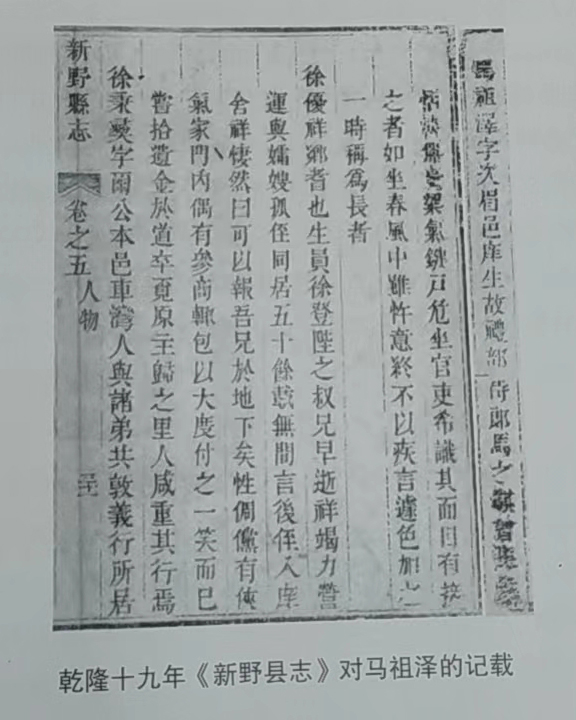 馬祖澤字次眉邑庠生故禮部侍郎馬之
戶危坐官吏希識其面目有接
之者如坐春風中雖忤意終不以疾言遽色加之
一時稱為長者
徐優祥鄉耆也生員徐登陛之叔兄早逝祥竭力營
運與孀嫂孤侄同居五十餘載無間言後侄入庠
舍祥悽然曰可以報吾兄於地下矣性倜儻有俠
氣家門內偶有參商輒包以大度付之一笑而已
嘗拾遺金於道卒覓原主歸之里人咸重其行焉
徐秉彞字爾公本邑車灣人與諸弟共敦義行所居
新野縣志 卷之五 人物
乾隆十九年《新野县志》对马祖泽的记载